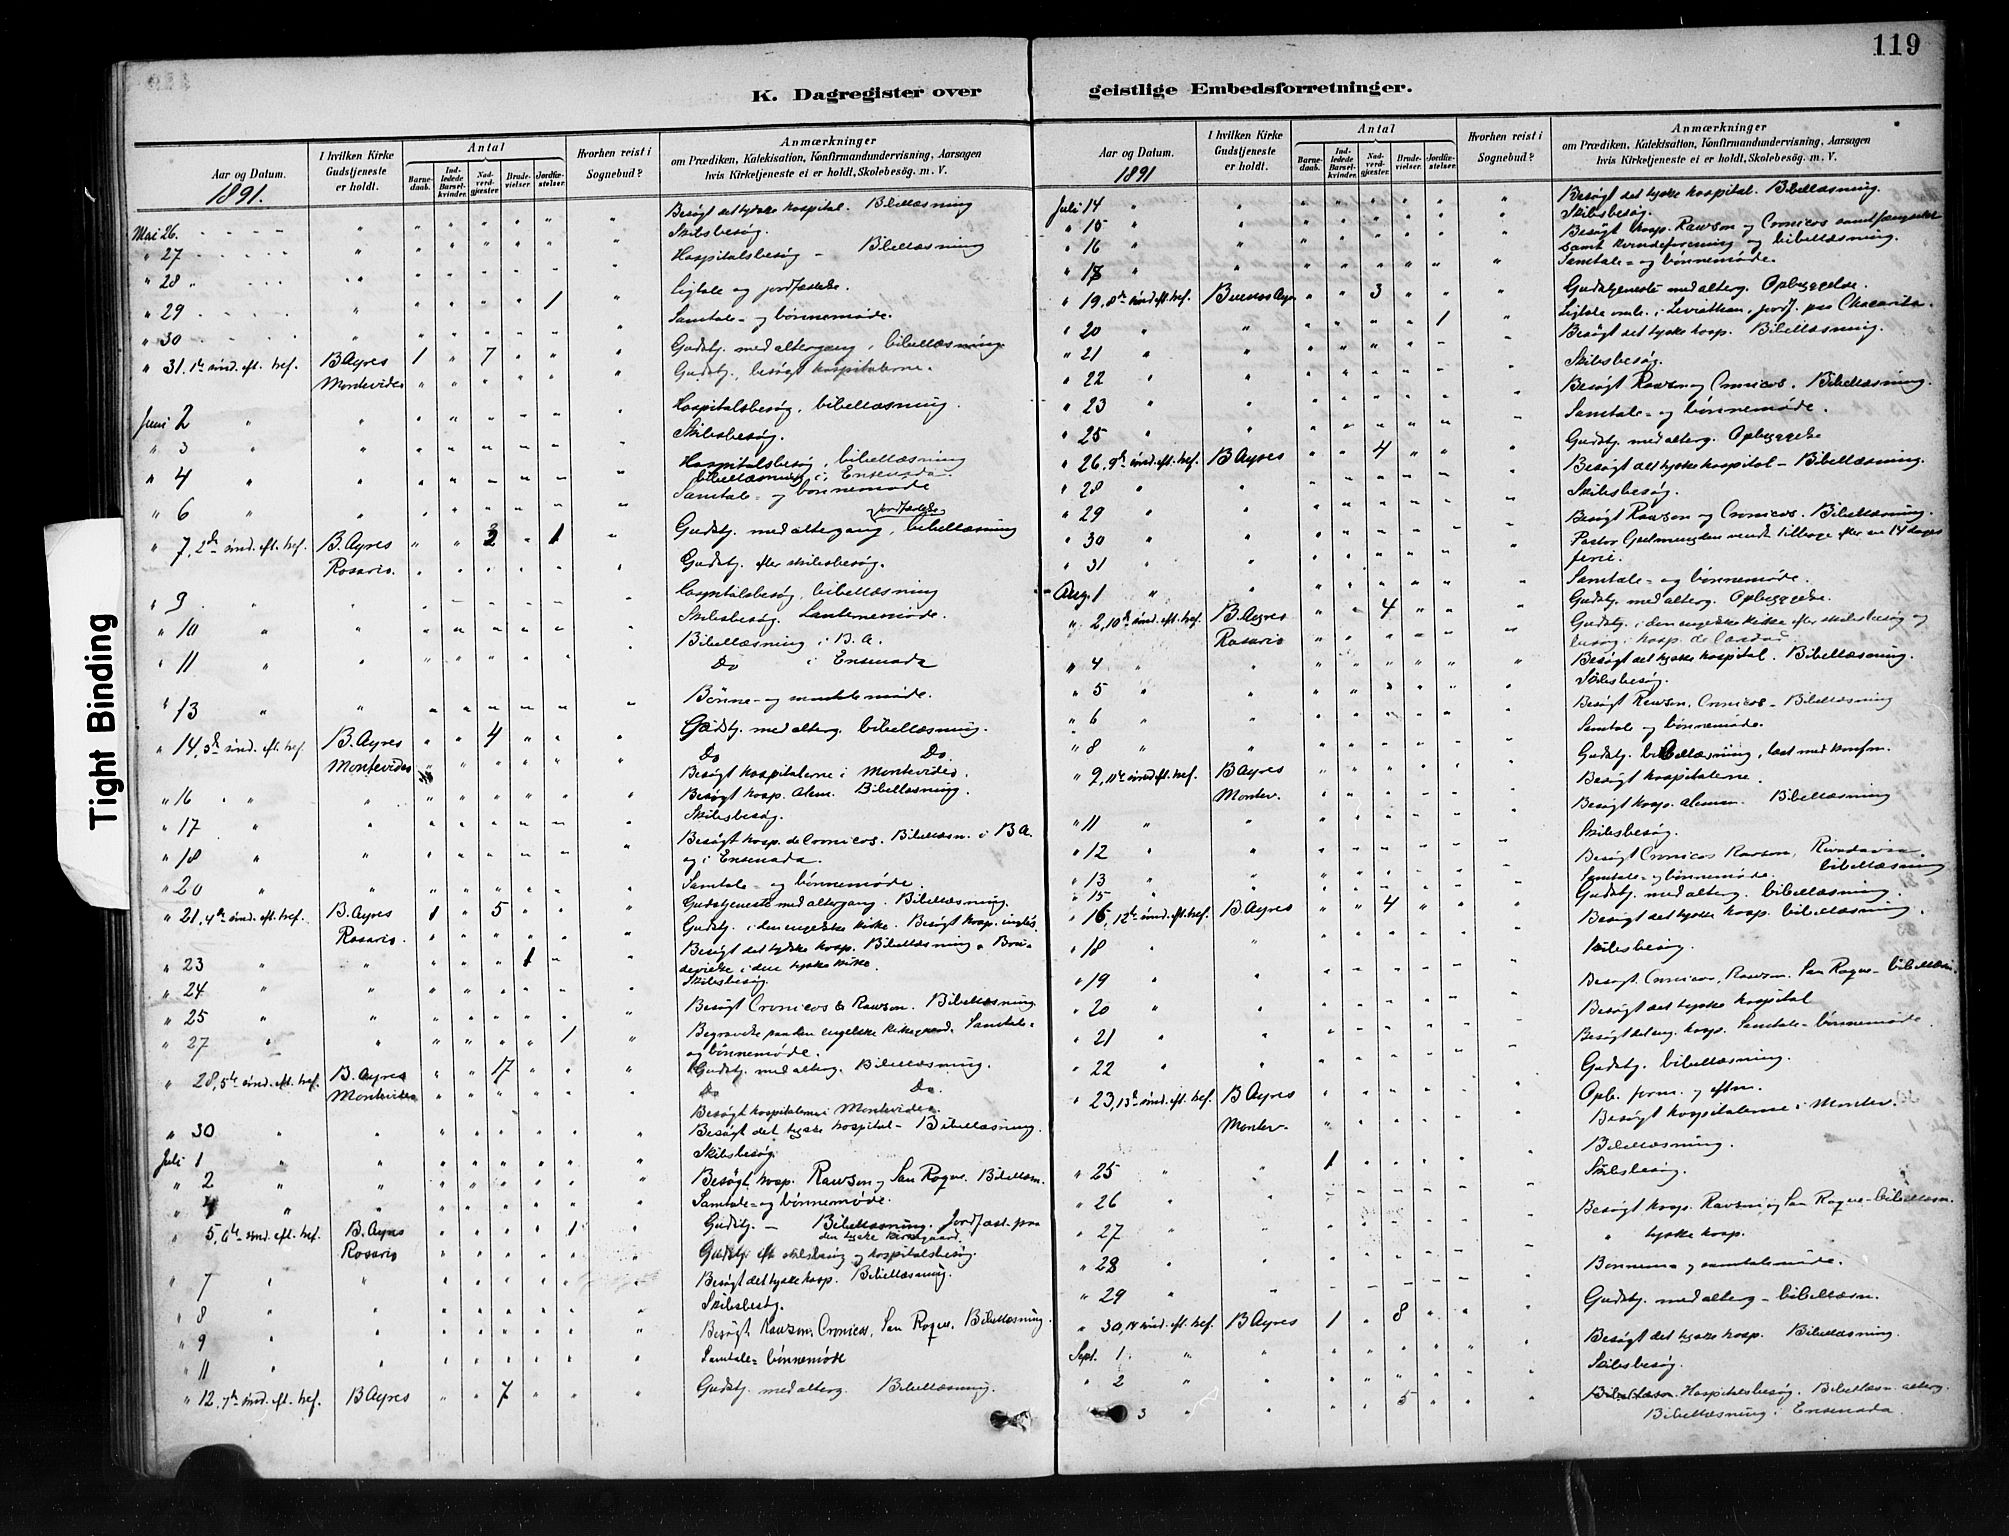 119
K. Dagregister over geistlige Embedsforretninger.
Tight Binding
Aar og Datum.
1891.
I hvilken Kirke Gudstjeneste er holdt.
Antal
Barne-daab.
Ind-ledede Barsel-kvinder.
Nad-verd-gjæster
Brude-vielser.
Jordfæ-stelser.
Hvorhen reist i Sognebud?
Anmærkninger
om Prædiken, Katekisation, Konfirmandundervisning, Aarsagen
hvis Kirketjeneste ei er holdt, Skolebesøg. m. V.
Mai 26. Besøgt det tydske hospital. Bibellæsning
" 27 Skibsbesøg.
" 28 Hospitalsbesøg - Bibellæsning
" 29 1 Ligtale og jordfæstelse.
" 30 Samtale- og bønnemøde.
" 31. 1te sønd. eft. tref. B Ayres 1 " 7 Gudstj. med altergang, bibellæsning
Montevideo Gudstj., besøgt hospitalerne.
Juni 2 Hospitalsbesøg, bibellæsning.
" 3 Skibsbesøg.
" 4 Hospitalsbesøg, bibellæsning
bibellæsning i Ensenada
" 6 Samtale- og bønnemøde
" 7, 2den sønd. eft. tref. B. Ayres 1 Gudstj. med altergang, jordfæstelse, bibellæsning
Rosario. Gudstj. efter skibsbesøg.
" 9 Hospitalsbesøg, bibellæsning
" 10 Skibsbesøg. Lanternemøde.
" 11 Bibellæsning i B. A.
Do i Ensenada
" 13 Bønne- og samtalemøde.
" 14, 3die sønd. eft. tref. B. Ayres 4 Gudstj. med alterg. bibellæsning.
Montevideo Do Do.
Besøgt hospitalerne i Montevideo.
" 16 Besøgt hosp. Alem. Bibellæsning.
" 17 Skibsbesøg.
" 18 Besøgt hosp. de Cronicos. Bibellæsn. i B A.
og i Ensenada.
" 20 Samtale- og bønnemøde.
" 21, 4de sønd. eft. tref. B. Ayres 1 " 5 Gudstjeneste med altergang. Bibellæsning.
Rosario. Gudstj. i den engelske kirke. Besøgt hosp. inglés.
" 23 1 Besøgt det tydske hosp. Bibellæsning. Bru-
devielse i den tyske kirke.
" 24 Skibsbesøg.
" 25 Besøgt Cronicos & Rawson. Bibellæsning
" 27 1 Begravelse paa den engelske kirkegaard. Samtale-
og bønnemøde.
" 28, 5te sønd. eft. tref. B. Ayres 17 Gudstj. med alterg. Bibellæsning.
Montevideo Do Do.
Besøgt hospitalerne i Montevideo.
" 30 Besøgt det tyske hospital - Bibellæsning.
Juli 1 Skibsbesøg
" 2 Besøgt hosp. Rawson og San Roque. Bibellæsn.
" 4 Samtale- og bønnemøde.
" 5, 6te sønd. eft. tref. B. Ayres 1 Gudstj. - Bibellæsning. Jordfæst. paa
den tyske kirkegaard.
Rosario Gudstj. eft. skibsbesøg og hospitalsbesøg.
" 7 Besøgt det tyske hosp. Bibellæsning.
" 8 Skibsbesøg.
" 9 Besøgt Rawson, Cronicos, San Roque. Bibellæsning.
" 11 Samtale- bønnemøde
" 12, 7de sønd. eft. tref. B Ayres 7 Gudstj. med alterg. Bibellæsning.
Aar og Datum.
1891
I hvilken Kirke Gudstjeneste er holdt.
Antal
Barne-daab.
Ind-ledede Barsel-kvinder.
Nad-verd-gjæster
Brude-vielser.
Jordfæ-stelser.
Hvorhen reist i Sognebud?
Anmærkninger
om Prædiken, Katekisation, Konfirmandundervisning, Aarsagen
hvis Kirketjeneste ei er holdt, Skolebesøg. m. V.
Juli 14 Besøgt det tyske hospital. Bibellæsning.
" 15 Skibsbesøg.
" 16 Besøgt hosp. Rawson og Cronicos samt fængselet
samt kvindeforening og bibellæsning.
" 18 Samtale- og bønnemøde.
" 19, 8de sønd. eft. tref. Buenos Ayr. 3 Gudstjeneste med alterg. Opbyggelse.
" 20 1 Ligtale omb. i Leviathan, jordf. paa Chacarita.
" 21 Besøgt det tyske hosp. Bibellæsning.
" 22 Skibsbesøg.
" 23 Besøgt Rawson og Cronicos. Bibellæsning.
" 25 Samtale- og bønnemøde.
" 26, 9de sønd. eft. tref. B Ayres 4 Gudstj. med alterg. Opbyggelse
" 28 Besøgt det tyske hospital - Bibellæsning.
" 29 Skibsbesøg.
" 30 Besøgt Rawson og Cronicos. Bibellæsning.
" 31 Pastor vendt tilbage efter en 14 dages
ferie.
Aug. 1 Samtale- og bønnemøde.
" 2, 10de sønd. eft. tref. B. Ayres 4 Gudstj. med alterg. Opbyggelse.
Rosario Gudstj. i den engelske kirke efter skibsbesøg og
besøg i hosp. de
" 4 Besøgt det tyske hospital. Bibellæsning.
" 5 Skibsbesøg.
" 6 Besøgt Rawson, Cronicos - Bibellæsning
" 8 Samtale og bønnemøde.
" 9, 11te sønd. eft. tref. B Ayres Gudstj. bibellæsning, læst med konfirm.
Montev. Besøgt hospitalerne.
" 11 Besøgt hosp. aleman. Bibellæsning
" 12 Skibsbesøg.
" 13 Besøgt Cronicos Rawson, Rivadavia. bibellæsning
" 15 Samtale- og bønnemøde.
" 16, 12te sønd. eft. tref. B. Ayres 4 Gudstj. med alterg. bibellæsning.
" 18 Besøgt det tyske hosp. bibellæsning.
" 19 Skibsbesøg.
" 20 Besøgt Cronicos, Rawson. San Roque - bibellæsn.
" 21 Besøgt det tyske hospital
" 22 Besøgt det eng. hosp. Samtale- bønnemøde.
" 23, 13de sønd. eft. tref. B Ayres Gudstj. bibellæsning.
Opb. form. og eftm.
Montev. Besøgt hospitalerne i Montev.
" 25 1 Bibellæsning.
" 26 Skibsbesøg.
" 27 Besøgt hosp. Rawson og San Roque - bibellæsn.
" 28 " tyske hosp.
" 29 Bønnemø- og samtalemøde.
" 30, 14 sønd. eft. tref. B Ayres 1 " 8 Gudstj. med alterg - bibellæsn.
Sept. 1 Besøgt det tyske hosp. Bibellæsning.
" 2 Skibsbesøg.
" 3 5 Hospitalsbesøg. Bibellæsn. alterg.
Bibellæsning i Ensenada.